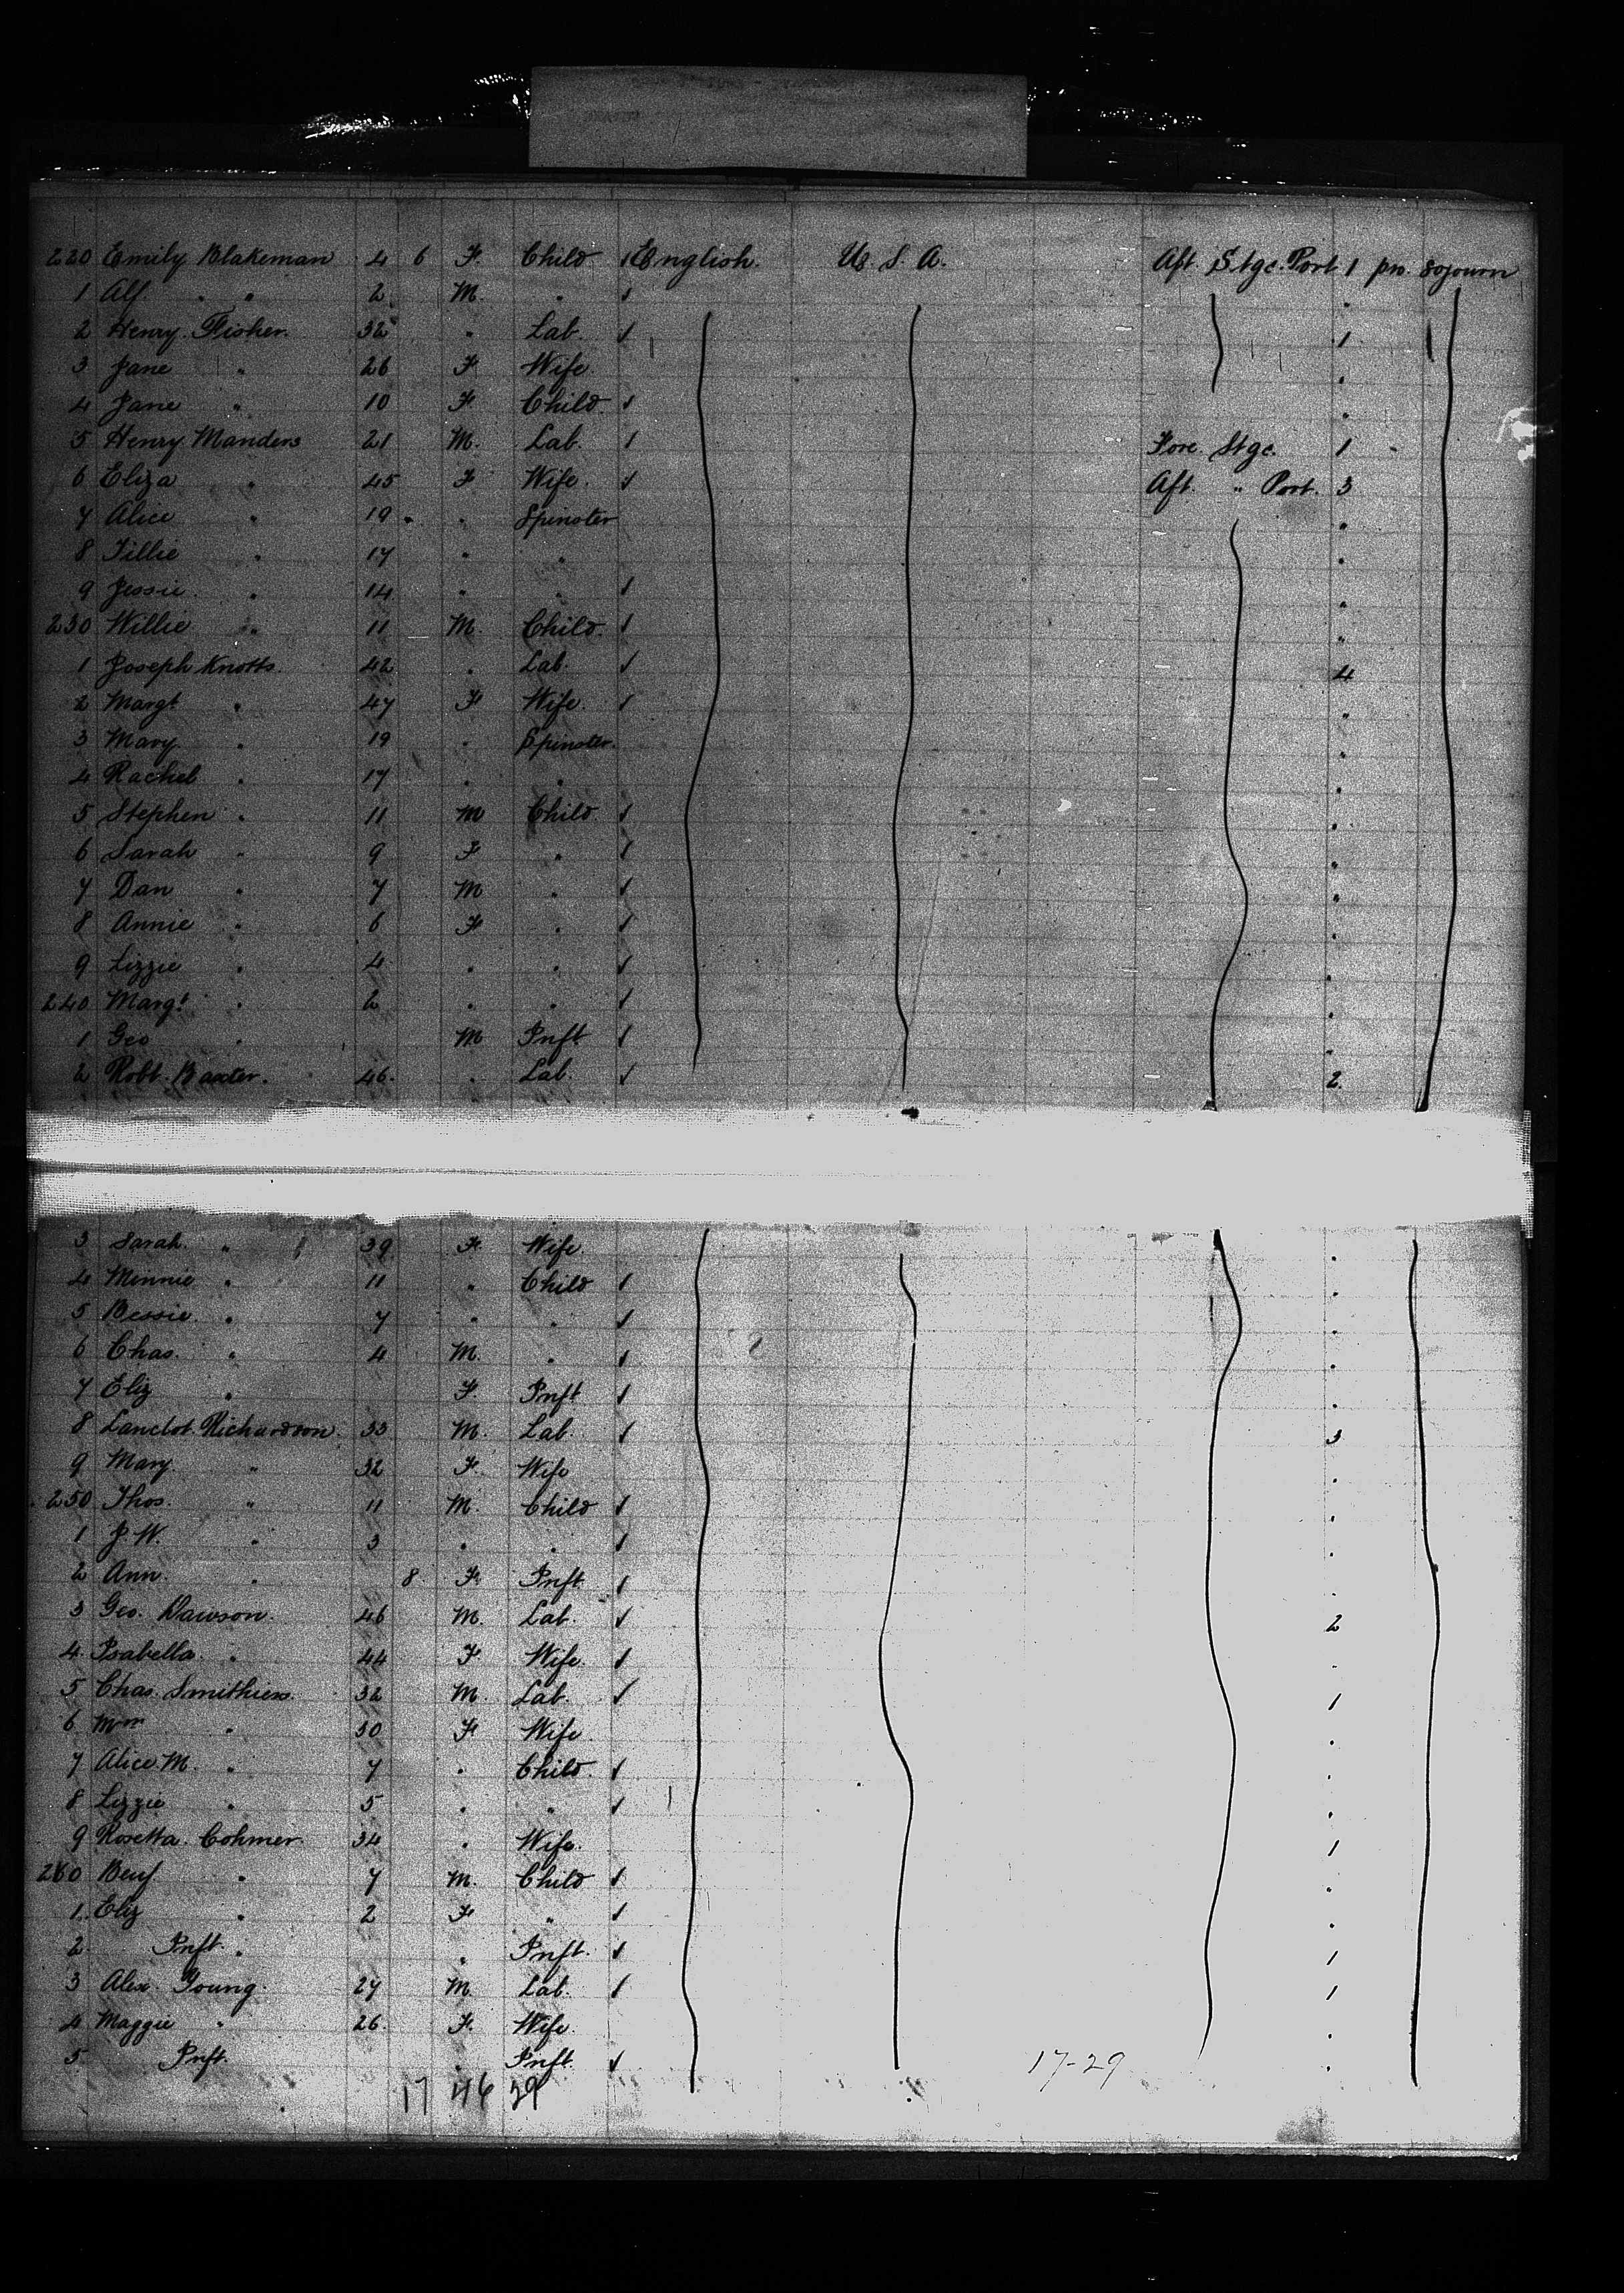 220 Emily Blakeman 4 6 F. Child 1 English. U. S. A. Aft. Stge. Port 1 pro. sojourn
1 Alf. " " 2 M. " 1 "
2 Henry Fisher. 32 " Lab. 1 1
3 Jane " 26 F Wife. "
4 Jane " 10 F Child. 1 "
5 Henry Manders 21 M. Lab. 1 Fore. Stge. 1
6 Eliza " 45 F Wife. 1 Aft. " Port. 3
7 Alice " 19 " Spinster "
8 Tillie " 17 " " "
9 Jessie. " 14 " " 1 "
230 Willie " 11 M. Child. 1 "
1 Joseph Knotts. 42 " Lab. 1 4
2 Margt " 47 F Wife. 1 "
3 Mary. " 19 " Spinster. "
4 Rachel " 17 " " "
5 Stephen " 11 M Child 1 "
6 Sarah " 9 F " 1 "
7 Dan " 7 M " 1 "
8 Annie " 6 F " 1 "
9 Lizzie " 4 " " 1 "
240 Margt " 2 " " 1 "
1 Geo " M Inft 1 "
2 Robt. Baxter. 46. " Lab. 1 2.
3 Sarah. " 39 F. Wife "
4 Minnie " 11 " Child 1 "
5 Bessie. " 7 " " 1 "
6 Chas. " 4 M. " 1 "
7 Eliz " F. Inft 1 "
8 Lanclot. Richardson. 33 M. Lab. 1 3
9 Mary. " 32 F. Wife "
250 Thos. " 11 M. Child 1 "
1 J. W. " 3 " " 1 "
2 Ann. " 8 F. Inft 1 "
3 Geo. Dawson. 46 M. Lab. 1 2
4. Isabella. " 44 F Wife. 1 "
5 Chas. Smithies. 32 M. Lab. 1 1
6 " 30 F Wife. "
7 Alice. M. " 7 " Child. 1 "
8 Lizzie " 5 " " 1 "
9 Rosetta. Cohmer. 34 " Wife. 1
260 Benj. " 7 M. Child 1 "
1. Eliz " 2 F " 1 "
2. Inft. " " Inft. 1 1
3 Alex. Young. 27 M. Lab. 1 1
4 Maggie " 26. F. Wife. "
5 Inft. " Inft. 1 "
17-29
17 46 29